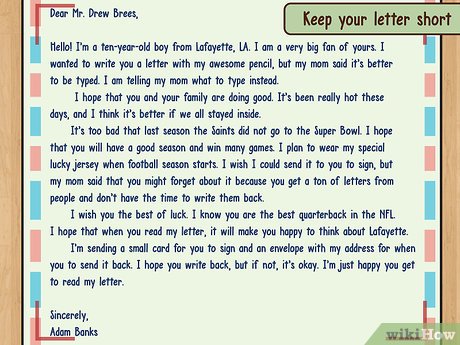 Dear Mr. Drew Brees,
Keep your letter short
Hello! I'm a ten-year-old boy from Lafayette, LA. I am a very big fan of yours. I
wanted to write you a letter with my awesome pencil, but my mom said it's better
to be typed. I am telling my mom what to type instead.
I hope that you and your family are doing good. It's been really hot these
days, and I think it's better if we all stayed inside.
It's too bad that last season the Saints did not go to the Super Bowl. I hope
that you will have a good season and win many games. I plan to wear my special
lucky jersey when football season starts. I wish I could send it to you to sign, but
my mom said that you might forget about it because you get a ton of letters from
people and don't have the time to write them back.
I wish you the best of luck. I know you are the best quarterback in the NFL.
I hope that when you read my letter, it will make you happy to think about Lafayette.
I'm sending a small card for you to sign and an envelope with my address for when
you to send it back. I hope you write back, but if not, it's okay. I'm just happy you get
to read my letter.
Sincerely,
Adam Banks
wikiHow